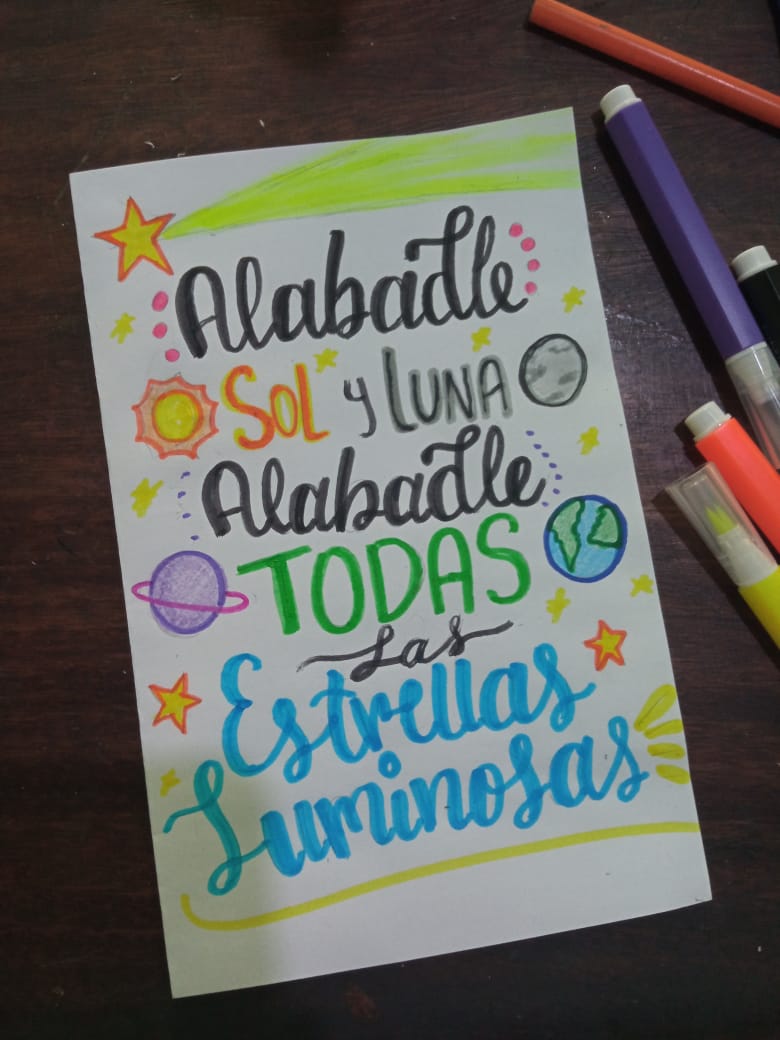 Alabadle
SOL y LUNA
Alabadle
TODAS
las
Estrellas
Luminosas